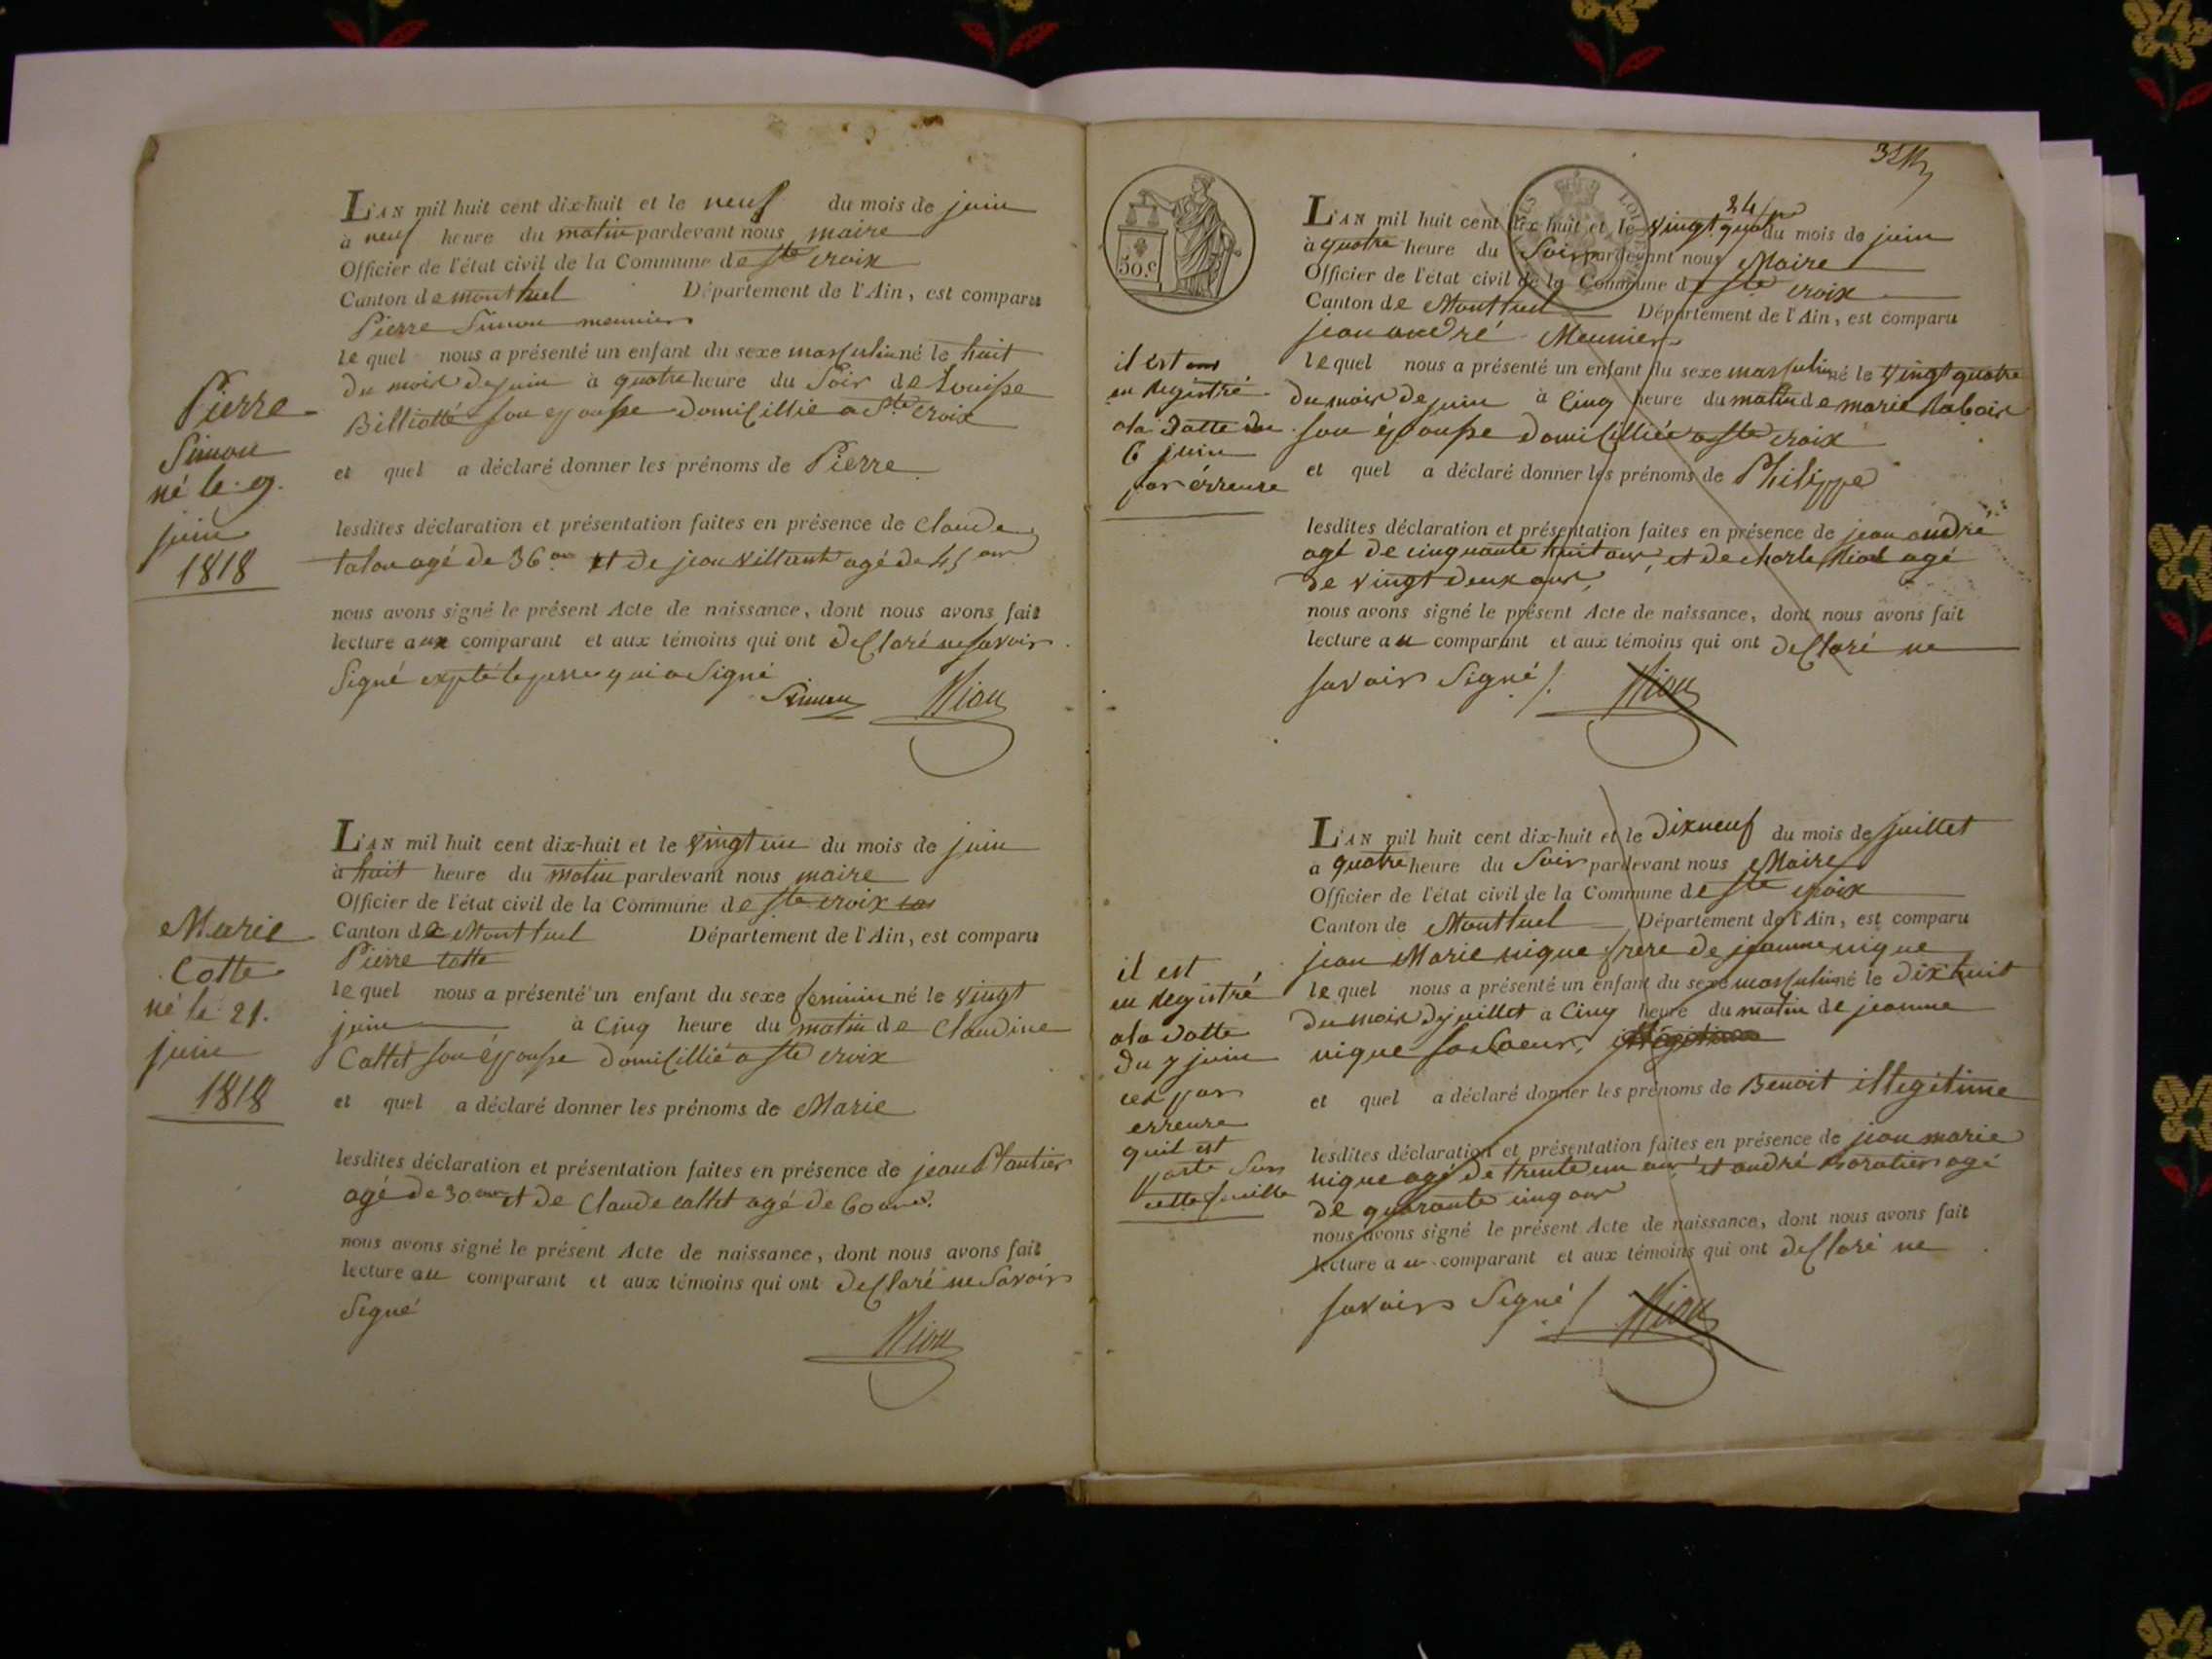 L'AN mil huit cent dix-huit et le neuf du mois de juin
à neuf heure du matin pardevant nous maire
Officier de l'état civil de la Commune de ste croix
Canton de montluel Département de l'Ain, est comparu
Pierre Simon meunier
le quel nous a présenté un enfant du sexe masculin né le huit
du mois de juin à quatre heure du Soir de Louisse
Billiotté son epousse domicillié a Ste croix
et quel a déclaré donner les prénoms de Pierre
lesdites déclaration et présentation faites en présence de Claude
talon agé de 36 ans et de jean villant agé de 45 ans
nous avons signé le présent Acte de naissance, dont nous avons fait
lecture aux comparant et aux témoins qui ont declaré ne savoir
Signé expté le perre qui a Signé
Simon Niou
Pierre
Simon
né le 9.
juin
1818
L'AN mil huit cent dix-huit et le vingt un du mois de juin
à huit heure du matin pardevant nous maire
Officier de l'état civil de la Commune de ste croix
Canton de Montluel Département de l'Ain, est comparu
Pierre Cotte
le quel nous a présenté un enfant du sexe feminin né le vingt
juin à Cinq heure du matin de Claudine
Cattet son épousse domicillié a ste croix
et quel a déclaré donner les prénoms de Marie
lesdites déclaration et présentation faites en présence de jean Plantier
agé de 30 ans et de Claude cattet agé de 60 ans.
nous avons signé le présent Acte de naissance, dont nous avons fait
lecture au comparant et aux témoins qui ont declaré ne Savoir
Signé
Niou
Marie
Cotte
né le 21.
juin
1818
50.c
L'AN mil huit cent dix-huit et le vingt quatre 24 du mois de juin
à quatre heure du Soir pardevant nous Maire
Officier de l'état civil de la Commune de ste croix
Canton de Montluel Département de l'Ain, est comparu
jean andré Meunier
le quel nous a présenté un enfant du sexe masculin né le vingt quatre
du mois de juin à Cinq heure du matin de marie
son épousse domicilliée a ste croix
et quel a déclaré donner les prénoms de Philippe
lesdites déclaration et présentation faites en présence de jean andré
agé de cinquante huit ans, et de charle agé
de vingt deux ans,
nous avons signé le présent Acte de naissance, dont nous avons fait
lecture au comparant et aux témoins qui ont declaré ne
savoir Signé /.
Niou
il est
en registré
a la datte du
6 juin
par érreure
L'AN mil huit cent dix-huit et le dixneuf du mois de juillet
à quatre heure du Soir pardevant nous Maire
Officier de l'état civil de la Commune de ste croix
Canton de Montluel Département de l'Ain, est comparu
jean Marie nique frere de jeanne nique
le quel nous a présenté un enfant du sexe masculin né le dix huit
du mois de juillet à Cinq heure du matin de jeanne
nique sa Soeur,
et quel a déclaré donner les prénoms de Benoit illegitime
lesdites déclaration et présentation faites en présence de jean marie
nique agé de trente un ans, et andré agé
de quarante cinq ans
nous avons signé le présent Acte de naissance, dont nous avons fait
lecture au comparant et aux témoins qui ont declaré ne
savoir Signé /.
Niou
il est
en registré
a la datte
du 7 juin
ces par
erreure
quil est
porte Sur
cette feuille